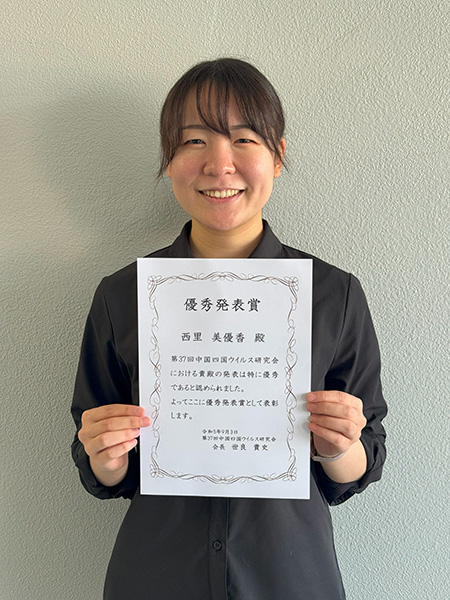 優秀発表賞
西里 美優香 殿
第37回中国四国ウイルス研究会
における貴殿の発表は特に優秀
であると認められました。
よってここに優秀発表賞として表彰
します。
令和5年9月3日
第37回中国四国ウイルス研究会
会長 世良 貴史